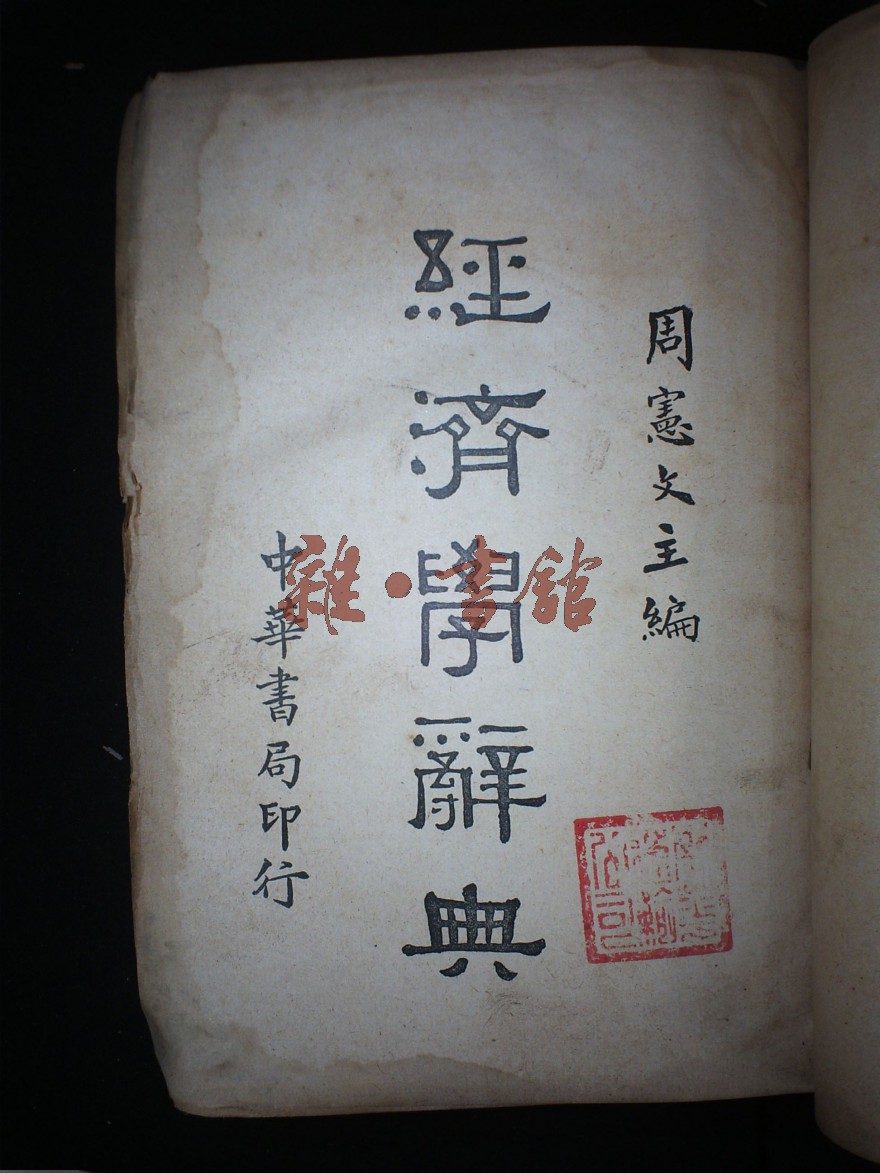 周憲文主編
經濟學辭典
中華書局印行
雜·書館